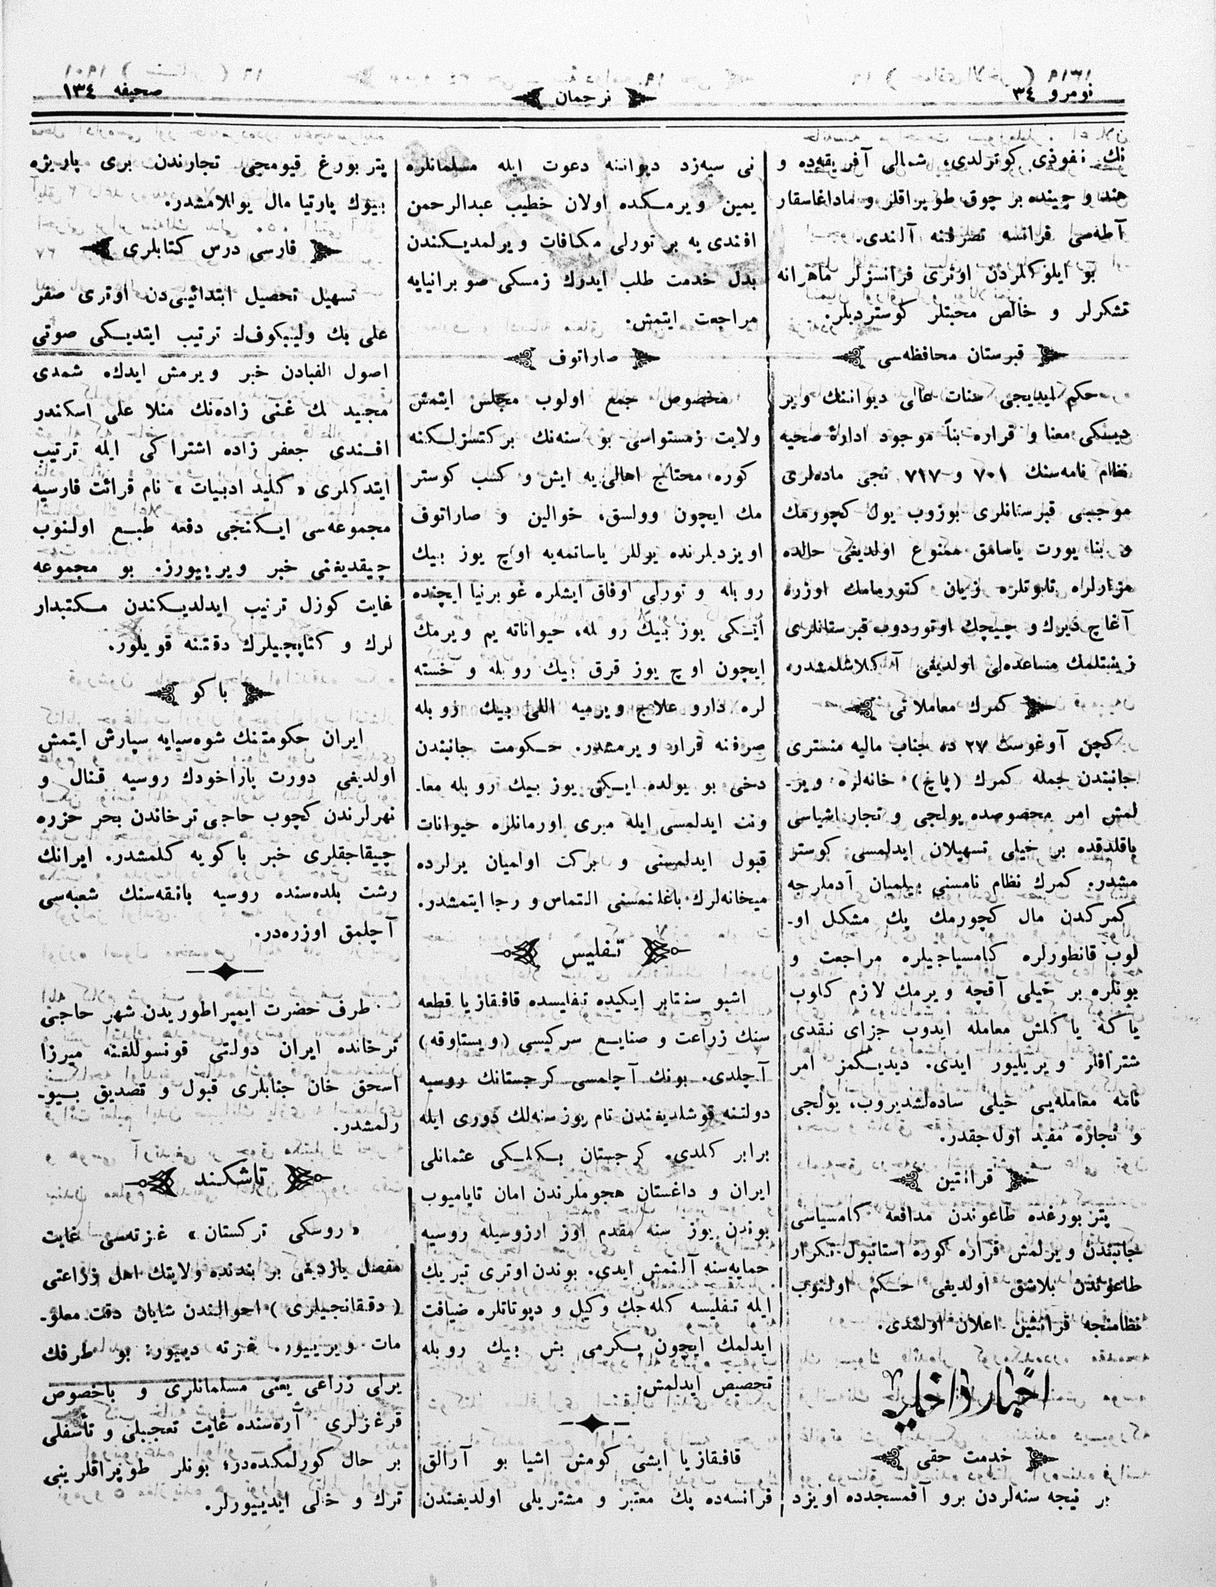 نومرو ٣٤
ترجمان
صحيفه ١٣٤
نك نفوذى كوترلدى، شمالى آفريقه‌ده و
هند و چينده بر چوق طوپراقلر و ماداغاسقار
آطه‌سى فرانسه تصرفنه آلندى.
بو ايلوكلردن اوترى فرانسزلر ماهرانه
تشكرلر و خالص محبتلر كوسترديلر.
قبرستان محافظه‌سى
حكم ايديجى سنات عالى ديواننك وير
ديكى معنا و قراره بناً موجود ادارۀ صحيه
نظام نامه‌سنك ٧٠١ و ٧١٧ نجى ماده‌لرى
موجبى قبرستانلرى بوزوب يول كچورمك
و بنا يورت ياسامق ممنوع اولديغى حالده
مزارلره تابوتلره زيان كتورمامك اوزره
آغاچ ديرك و چيچك اوتوردوب قبرستانلرى
زينتلمك مساعده‌لى اولديغى آكلاشلمشدر.
كمرك معاملاتى
كچن آوغوست ٢٧ ده جناب ماليه منسترى
جانبندن جمله كمرك (پاچ) خانه‌لره وير-
لمش امر مخصوصده يولجى و تجار اشياسى
باقلدقده بر خيلى تسهيلات ايدلمسى كوستر
مشدر. كمرك نظام نامسنى بيلميان آدملرجه
كمركدن مال كچورمك پك مشكل او-
لوب قانطورلره كامسياجيلره مراجعت و
بونلره بر خيلى آقچه ويرمك لازم كلوب
ياكه ياكلش معامله ايدوب جزاى نقدى
شترافلر ويريليور ايدى. ديديكمز امر
نامه معامله‌يى خيلى ساده‌لشديروب، يولجى
و تجاره مفيد اوله‌جقدر.
قرانتين
پتربورغده طاعوندن مدافعه كامسياسى
جانبندن ويرلمش قراره كوره استانبول تكرار
طاعوندن بلاشق اولديغى حكم اولنوب
نظامنجه قرانتين اعلان اولندى.
اخبار داخليه
خدمت حقى
بر نيجه سنه‌لردن برو آقمسجدده اويزد
نى سيه‌زد ديواننه دعوت ايله مسلمانلره
يمين ويرمكده اولان خطيب عبدالرحمن
افندى‌يه بر تورلى مكافات ويرلمديكندن
بدل خدمت طلب ايدرك زمسكى صوبرانيايه
مراجعت ايتمش.
صاراتوف
مخصوص جمع اولوب مجلس ايتمش
ولايت زمستواسى بو سنه‌نك بركتسزلكنه
كوره محتاج اهالى‌يه ايش و كسب كوستر
مك ايچون وولسق، خوالين و صاراتوف
اويزدلرنده يوللر ياساتمه‌يه اوچ يوز بيك
روبله و تورلى اوفاق ايشلره غوبرنيا ايچنده
ايكى يوز بيك روبله، حيواناته يم ويرمك
ايچون اوچ يوز قرق بيك روبله و خسته
لره دارو علاج ويرميه اللى بيك روبله
صرفنه قرار ويرمشدر. حكومت جانبندن
دخى بو يولده ايكى يوز بيك روبله معا-
ونت ايدلمسى ايله ميرى اورمانلره حيوانات
قبول ايدلمسنى و بركت اولميان يرلرده
ميخانه‌لرك باغلنمسنى التماس و رجا ايتمشدر.
تفليس
اشبو سنتابر ايكيده تفليسده قافقازيا قطعه
سنك زراعت و صنايع سركيسى (ويستاوقه)
آچلدى. بونك آچلمسى كرجستانك روسيه
دولتنه قوشلديغندن تام يوز سنه‌لك دورى ايله
برابر كلدى. كرجستان بكلكى عثمانلى
ايران و داغستان هجوملرندن امان تاپاميوب
بوندن يوز سنه مقدم اوز ارزوسيله روسيه
حمايه‌سنه آلنمش ايدى. بوندن اوترى تبريك
ايله تفليسه كله‌جك وكيل و دپوتاتلره ضيافت
ايدلمك ايچون يكرمى بش بيك روبله
تخصيص ايدلمش.
قافقازيا ايشى كومش اشيا بو آرالق
فرانسه‌ده پك معتبر و مشتريلى اولديغندن
پتربورغ قيومجى تجارندن برى پاريژه
بيوك پارتيا مال يوللامشدر.
فارسى درس كتابلرى
تسهيل تحصيل ابتدائيى‌دن اوترى صفر
على بك وليبكوف‌ك ترتيب ايتديكى صوتى
اصول الفبادن خبر ويرمش ايدك. شمدى
مجيد بك غنى زاده‌نك منلا على اسكندر
افندى جعفر زاده اشتراكى ايله ترتيب
ايتدكلرى «كليد ادبيات» نام قرائت فارسيه
مجموعه‌سى ايكنجى دفعه طبع اولنوب
چيقديغنى خبر ويرييورز. بو مجموعه
غايت كوزل ترتيب ايدلديكندن مكتبدار
لرك و كتابچيلرك دقتنه قويلور.
باكو
ايران حكومتنك شوه‌سيايه سپارش ايتمش
اولديغى دورت باراخودك روسيه قنال و
نهرلرندن كچوب حاجى ترخاندن بحر خزره
چيقاجقلرى خبر باكويه كلمشدر. ايرانك
رشت بلده‌سنده روسيه بانقه‌سنك شعبه‌سى
آچلمق اوزره‌در.
طرف حضرت ايمپراطوريدن شهر حاجى
ترخانده ايران دولتى قونسوللغنه ميرزا
اسحق خان جنابلرى قبول و تصديق بيو-
رلمشدر.
تاشكند
«روسكى تركستان» غزته‌سى غايت
مفصل يازديغى بر بندنده ولايتك اهل زراعتى
(دقانجيلرى) احوالندن شايان دقت معلو-
مات ويرييور. غزته دييور: بو طرفك
يرلى زراعى يعنى مسلمانلرى و باخصوص
قرغزلرى آره‌سنده غايت تعجبلى و تأسفلى
بر حال كورلمكده‌در؛ بونلر طوپراقلرينى
ترك و خالى ايدييورلر.